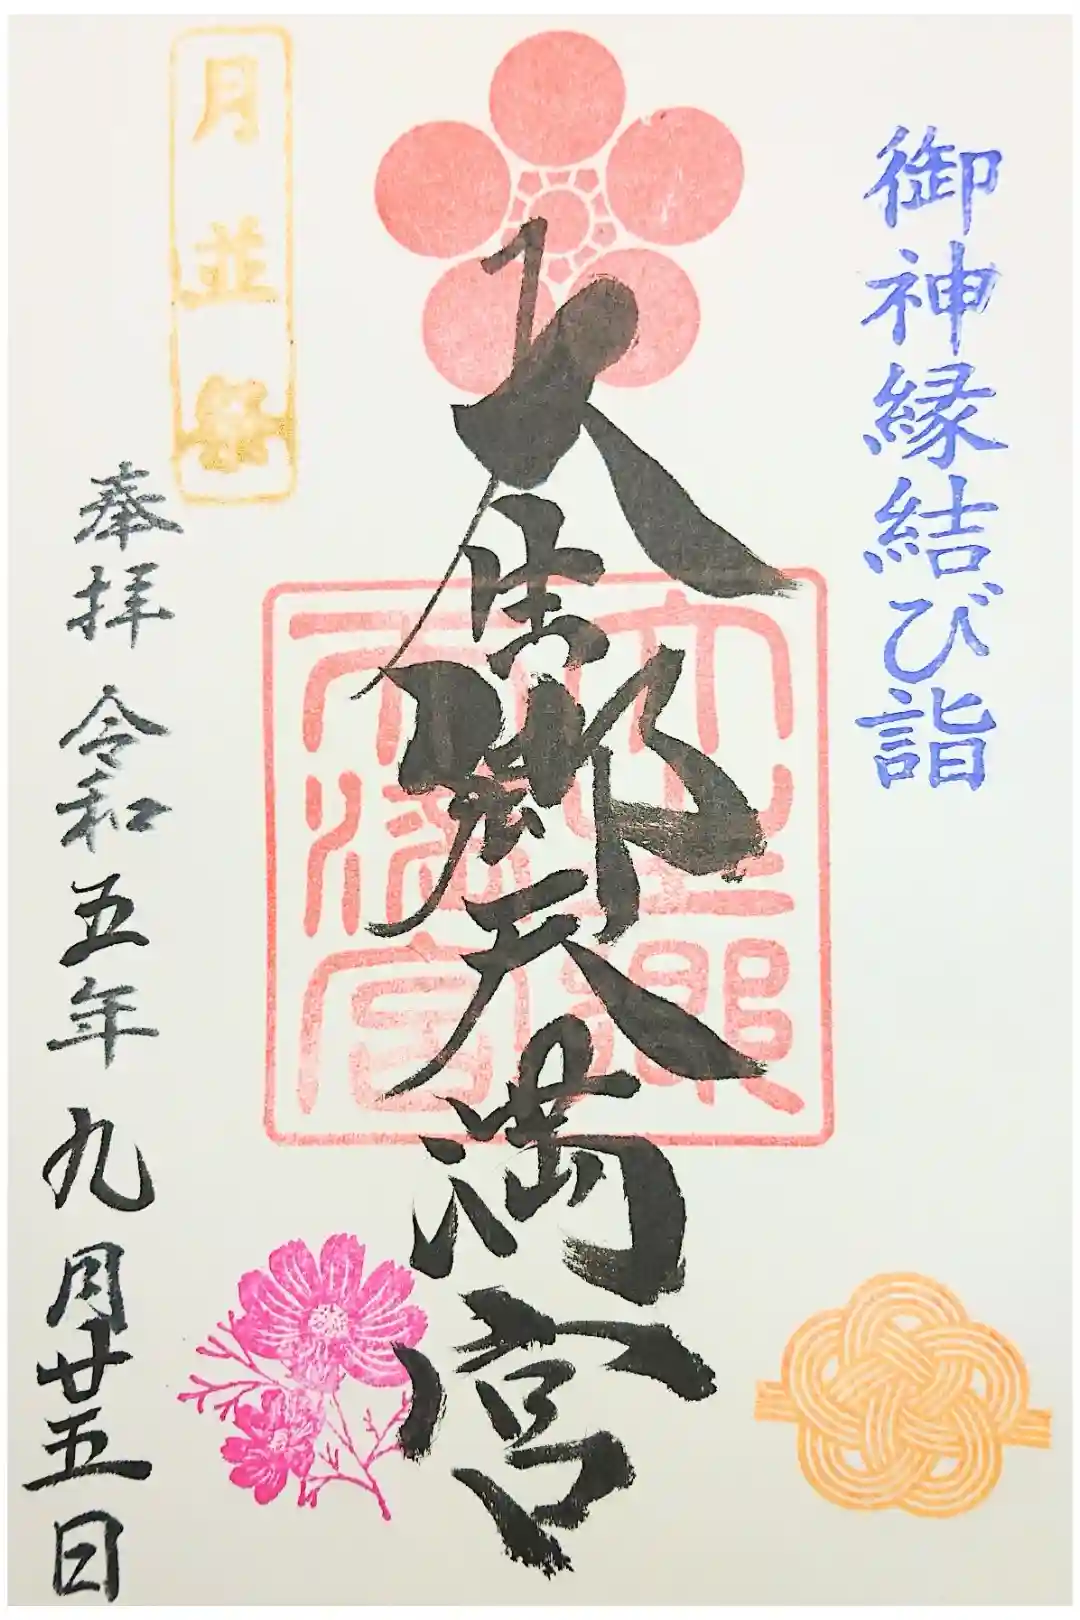 御神縁結び詣
大生郷天満宮
大生郷
天満宮
月並祭
奉拝 令和五年 九月廿五日